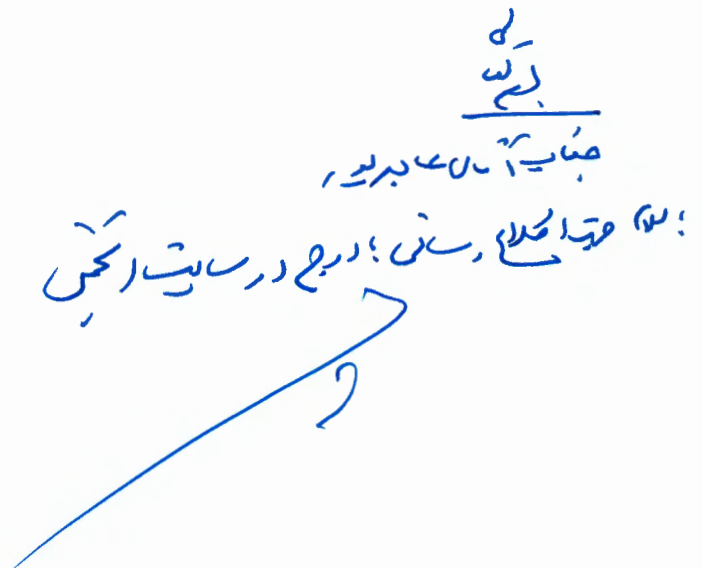 بسم الله
جناب آقای عابدپور
با سلام جهت اطلاع رسانی با درج در سایت انجمن